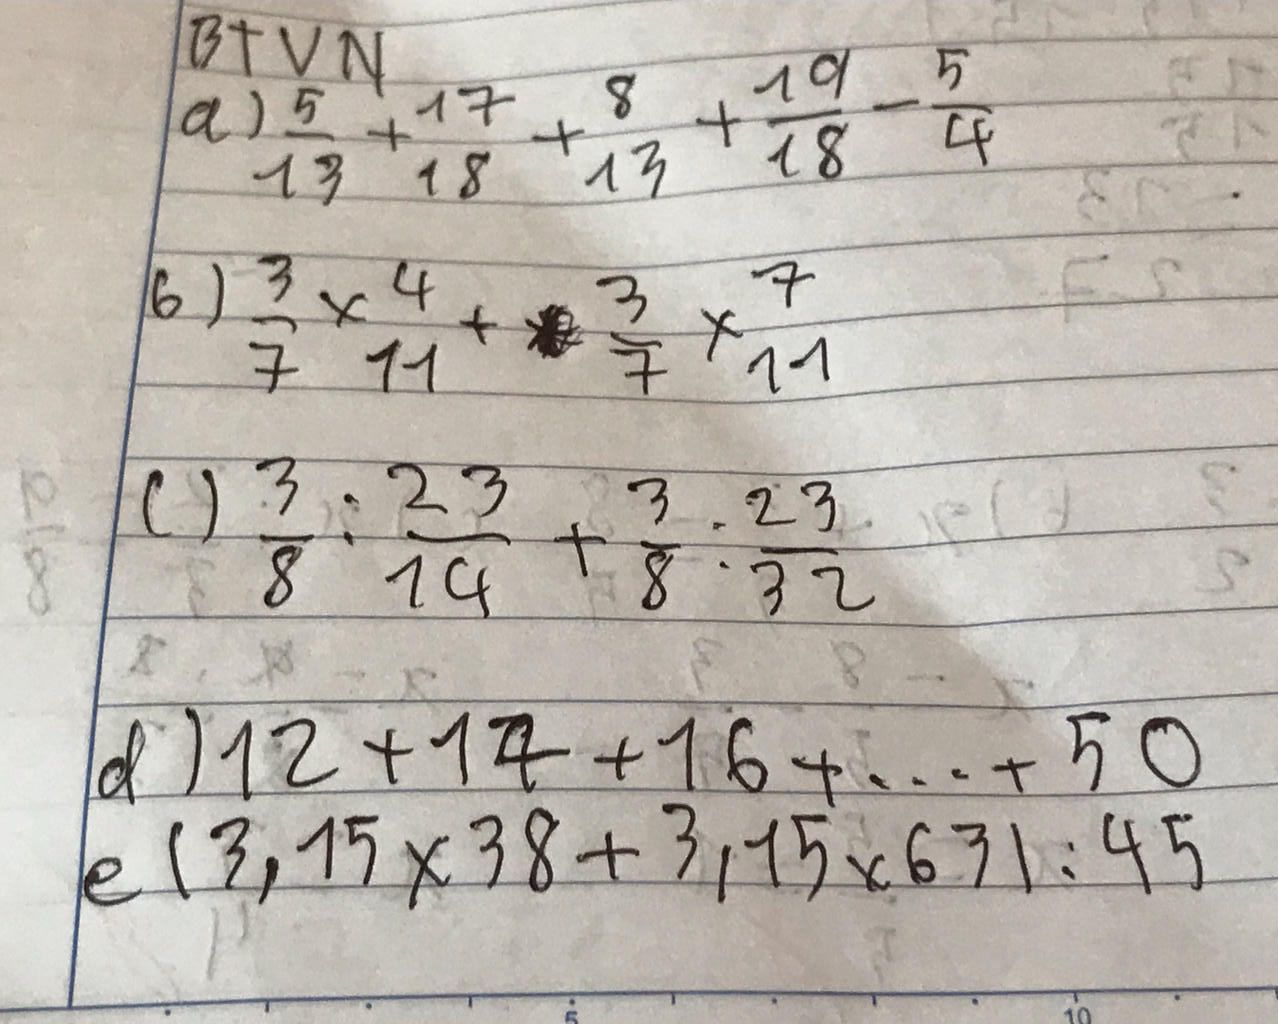 BTVN
a) 5/13 + 17/18 + 8/13 + 19/18 - 5/4
b) 3/7 x 4/11 + 3/7 x 7/11
c) 3/8 : 23/14 + 3/8 : 23/32
d) 12 + 14 + 16 + ... + 50
e (3,15 x 38 + 3,15 x 63) : 45
5 10